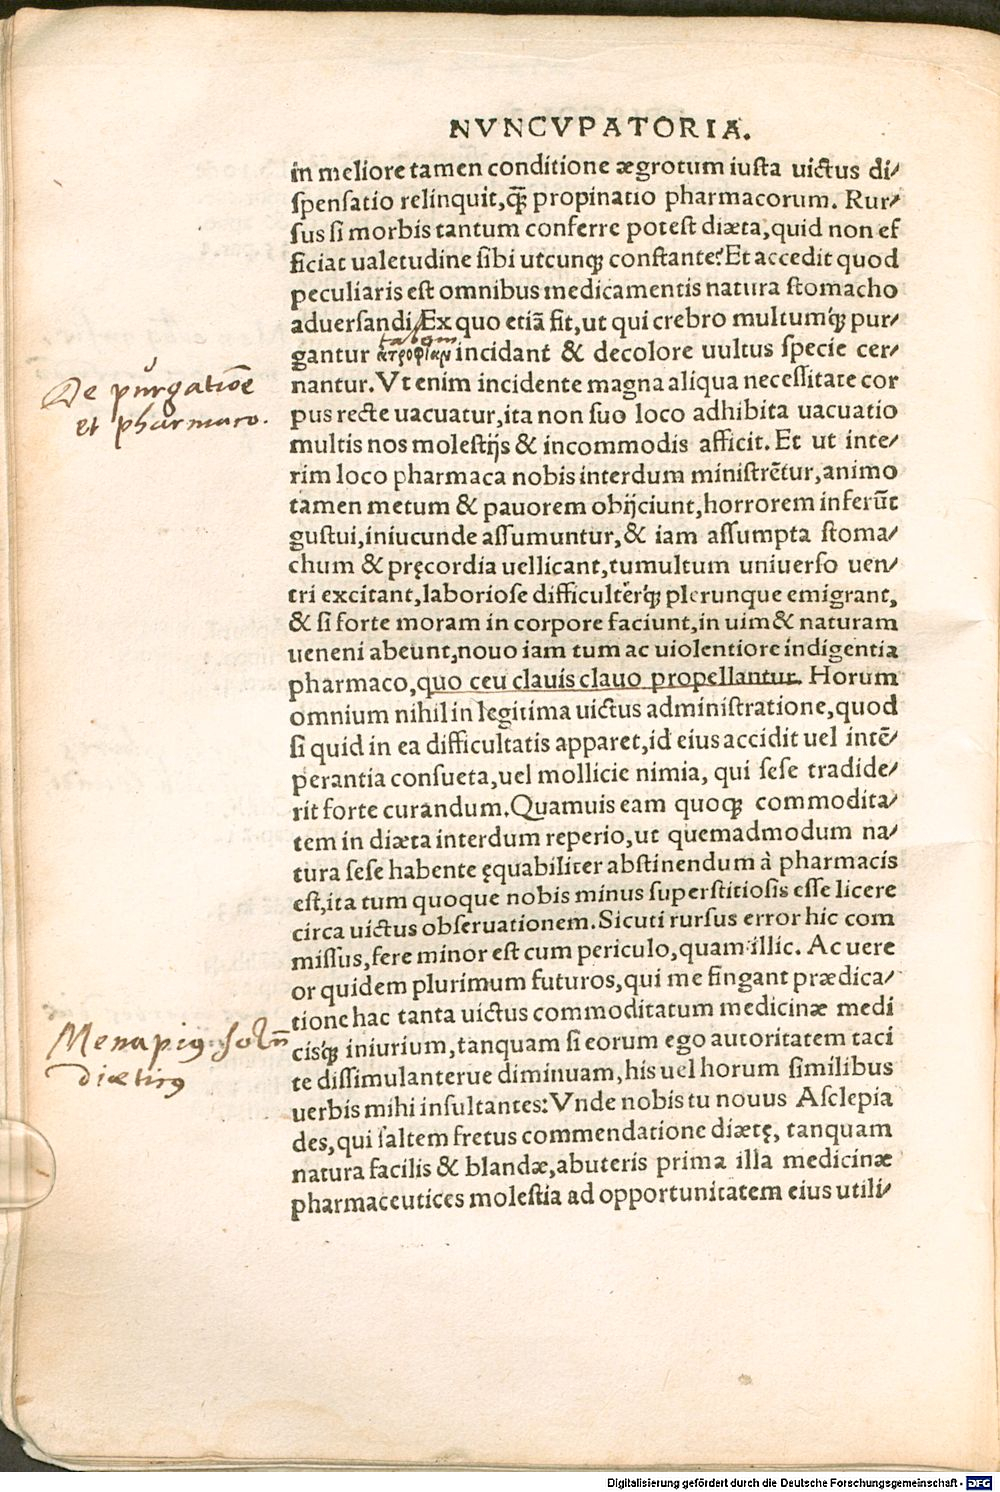 NVNCVPATORIA.
in meliore tamen conditione ægrotum iusta uictus di⸗
spensatio relinquit, q̃ꝫ propinatio pharmacorum. Rur⸗
sus si morbis tantum conferre potest diæta, quid non ef
ficiat ualetudine sibi utcunqꝫ constante? Et accedit quod
peculiaris est omnibus medicamentis natura stomacho
aduersandi. Ex quo etiã fit, ut qui crebro multumqꝫ pur⸗
tabem
gantur ἀτροφίαν incidant & decolore uultus specie cer⸗
De purgatiōe
nantur. Vt enim incidente magna aliqua necessitate cor
et pharmaco.
pus recte uacuatur, ita non suo loco adhibita uacuatio
multis nos molestijs & incommodis afficit. Et ut inte⸗
rim loco pharmaca nobis interdum ministrẽtur, animo
tamen metum & pauorem obijciunt, horrorem inferũt
gustui, iniucunde assumuntur, & iam assumpta stoma⸗
chum & pręcordia uellicant, tumultum uniuerso uen⸗
tri excitant, laboriose difficulterqꝫ plerunque emigrant,
& si forte moram in corpore faciunt, in uim & naturam
ueneni abeunt, nouo iam tum ac uiolentiore indigentia
pharmaco, quo ceu clauis clauo propellantur. Horum
omnium nihil in legitima uictus administratione, quod
si quid in ea difficultatis apparet, id eius accidit uel intẽ⸗
perantia consueta, uel mollicie nimia, qui sese tradide⸗
rit forte curandum. Quamuis eam quoqꝫ commodita⸗
tem in diæta interdum reperio, ut quemadmodum na⸗
tura sese habente ęquabiliter abstinendum à pharmacis
est, ita tum quoque nobis minus superstitiosis esse licere
circa uictus obseruationem. Sicuti rursus error hic com
missus, fere minor est cum periculo, quam illic. Ac uere
or quidem plurimum futuros, qui me fingant prædica⸗
tione hac tanta uictus commoditatum medicinæ medi
Menapius
cisqꝫ iniurium, tanquam si eorum ego autoritatem taci
diæticus
te dissimulanterue diminuam, his uel horum similibus
uerbis mihi insultantes: Vnde nobis tu nouus Asclepia
des, qui saltem fretus commendatione diætę, tanquam
natura facilis & blandæ, abuteris prima illa medicinæ
pharmaceutices molestia ad opportunitatem eius utili⸗
Digitalisierung gefördert durch die Deutsche Forschungsgemeinschaft - DFG